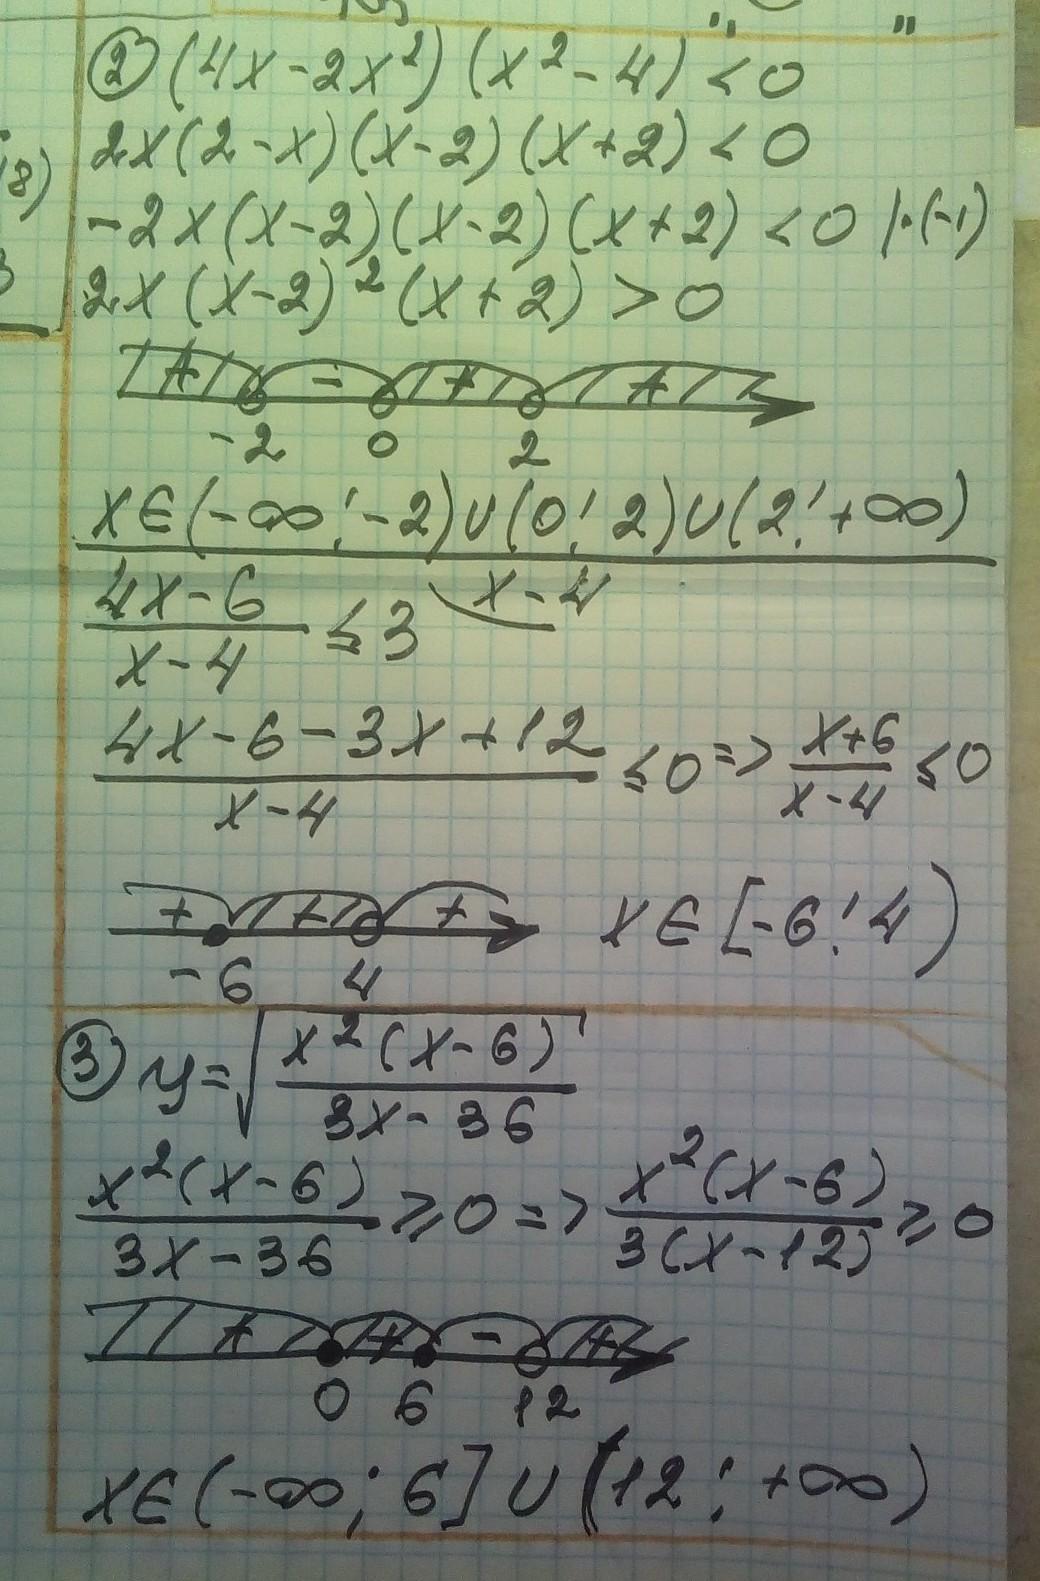 ② (4x-2x²)(x²-4)<0
2x(2-x)(x-2)(x+2)<0
-2x(x-2)(x-2)(x+2)<0 |·(-1)
2x(x-2)²(x+2)>0
+ - + +
-2 0 2
x∈(-∞;-2)∪(0;2)∪(2;+∞)
(4x-6)/(x-4) ≤3 x-4
(4x-6-3x+12)/(x-4) ≤0 => (x+6)/(x-4) ≤0
+ + + x∈[-6;4)
-6 4
③ y=√(x²(x-6)/(3x-36))
x²(x-6)/(3x-36) ≥0 => x²(x-6)/(3(x-12)) ≥0
+ + - +
0 6 12
x∈(-∞;6]∪(12;+∞)